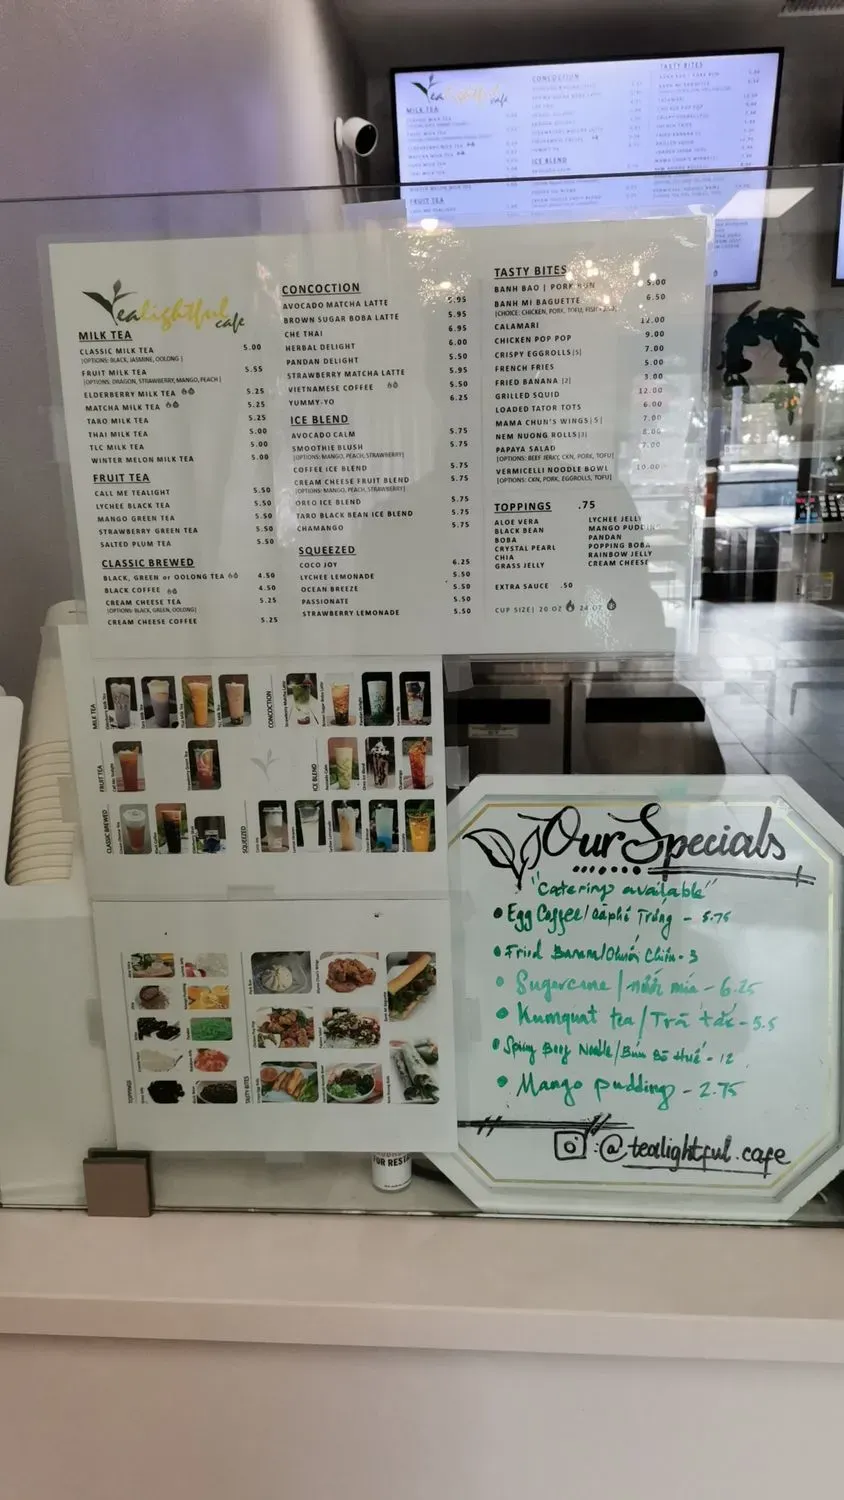 Tealightful cafe
MILK TEA
CLASSIC MILK TEA 5.00
[OPTIONS: BLACK, JASMINE, OOLONG]
FRUIT MILK TEA 5.55
[OPTIONS: DRAGON, STRAWBERRY, MANGO, PEACH]
ELDERBERRY MILK TEA 5.25
MATCHA MILK TEA 5.25
TARO MILK TEA 5.25
THAI MILK TEA 5.00
TLC MILK TEA 5.00
WINTER MELON MILK TEA 5.00
FRUIT TEA
CALL ME TEALIGHT 5.50
LYCHEE BLACK TEA 5.50
MANGO GREEN TEA 5.50
STRAWBERRY GREEN TEA 5.50
SALTED PLUM TEA 5.50
CLASSIC BREWED
BLACK, GREEN or OOLONG TEA 4.50
BLACK COFFEE 4.50
CREAM CHEESE TEA 5.25
[OPTIONS: BLACK, GREEN, OOLONG]
CREAM CHEESE COFFEE 5.25
CONCOCTION
AVOCADO MATCHA LATTE 5.95
BROWN SUGAR BOBA LATTE 5.95
CHE THAI 6.95
HERBAL DELIGHT 6.00
PANDAN DELIGHT 5.50
STRAWBERRY MATCHA LATTE 5.95
VIETNAMESE COFFEE 5.50
YUMMY-YO 6.25
ICE BLEND
AVOCADO CALM 5.75
SMOOTHIE BLUSH 5.75
[OPTIONS: MANGO, PEACH, STRAWBERRY]
COFFEE ICE BLEND 5.75
CREAM CHEESE FRUIT BLEND 5.75
[OPTIONS: MANGO, PEACH, STRAWBERRY]
OREO ICE BLEND 5.75
TARO BLACK BEAN ICE BLEND 5.75
CHAMANGO 5.75
SQUEEZED
COCO JOY 6.25
LYCHEE LEMONADE 5.50
OCEAN BREEZE 5.50
PASSIONATE 5.50
STRAWBERRY LEMONADE 5.50
TASTY BITES
BANH BAO | PORK BUN 5.00
BANH MI BAGUETTE 6.50
[CHOICE: CHICKEN, PORK, TOFU,
CALAMARI 12.00
CHICKEN POP POP 9.00
CRISPY EGGROLLS [5] 7.00
FRENCH FRIES 5.00
FRIED BANANA [2] 3.00
GRILLED SQUID 12.00
LOADED TATOR TOTS 6.00
MAMA CHUN'S WINGS [5] 7.00
NEM NUONG ROLLS [3] 8.00
PAPAYA SALAD 7.00
[OPTIONS: BEEF JERKY, CKN, PORK, TOFU]
VERMICELLI NOODLE BOWL 10.00
[OPTIONS: CKN, PORK, EGGROLLS, TOFU]
TOPPINGS .75
ALOE VERA
BLACK BEAN
BOBA
CRYSTAL PEARL
CHIA
GRASS JELLY
LYCHEE JELLY
MANGO PUDDING
PANDAN
POPPING BOBA
RAINBOW JELLY
CREAM CHEESE
EXTRA SAUCE .50
CUP SIZE| 20 OZ 24 OZ
MILK TEA
CONCOCTION
FRUIT TEA
ICE BLEND
CLASSIC BREWED
SQUEEZED
TOPPINGS
TASTY BITES
Our Specials
"Catering available"
• Egg Coffee/Cà phê Trứng - 5.75
• Fried Banana/Chuối Chiên - 3
• Sugarcane/nước mía - 6.25
• Kumquat tea/Trà tắc - 5.5
• Spicy Beef Noodle/Bún Bò Huế - 12
• Mango pudding - 2.75
@tealightful.cafe
FOR REST